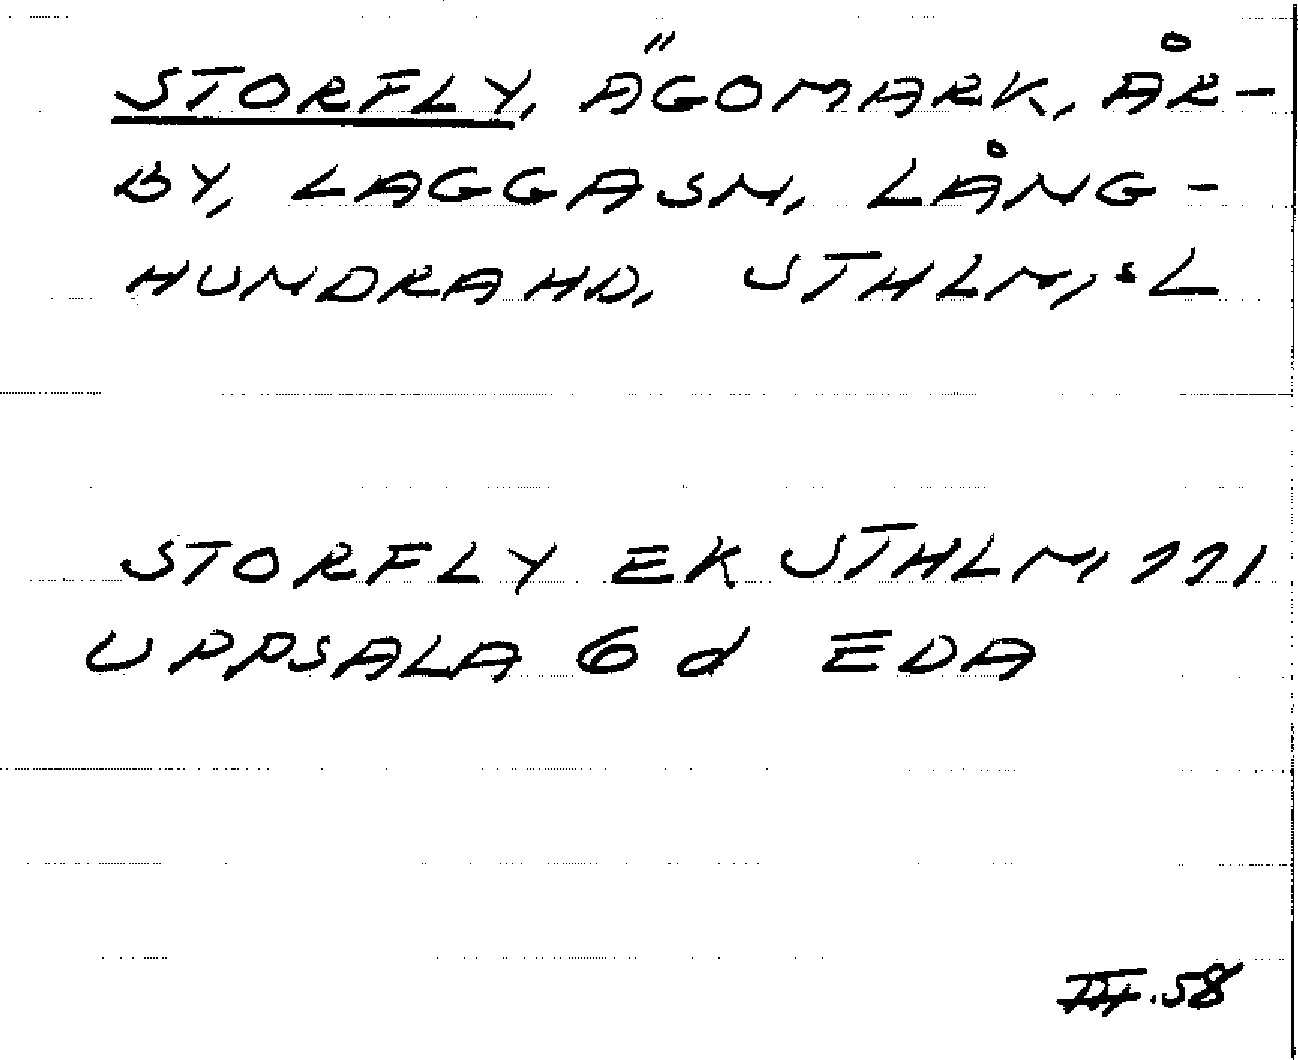 STORFLY, ÄGOMARK, ÅR-
BY, LAGGASN, LÅNG-
HUNDRA HD, STHLM,:L
STORFLY EK STHLM 111
UPPSALA 6 d EDA